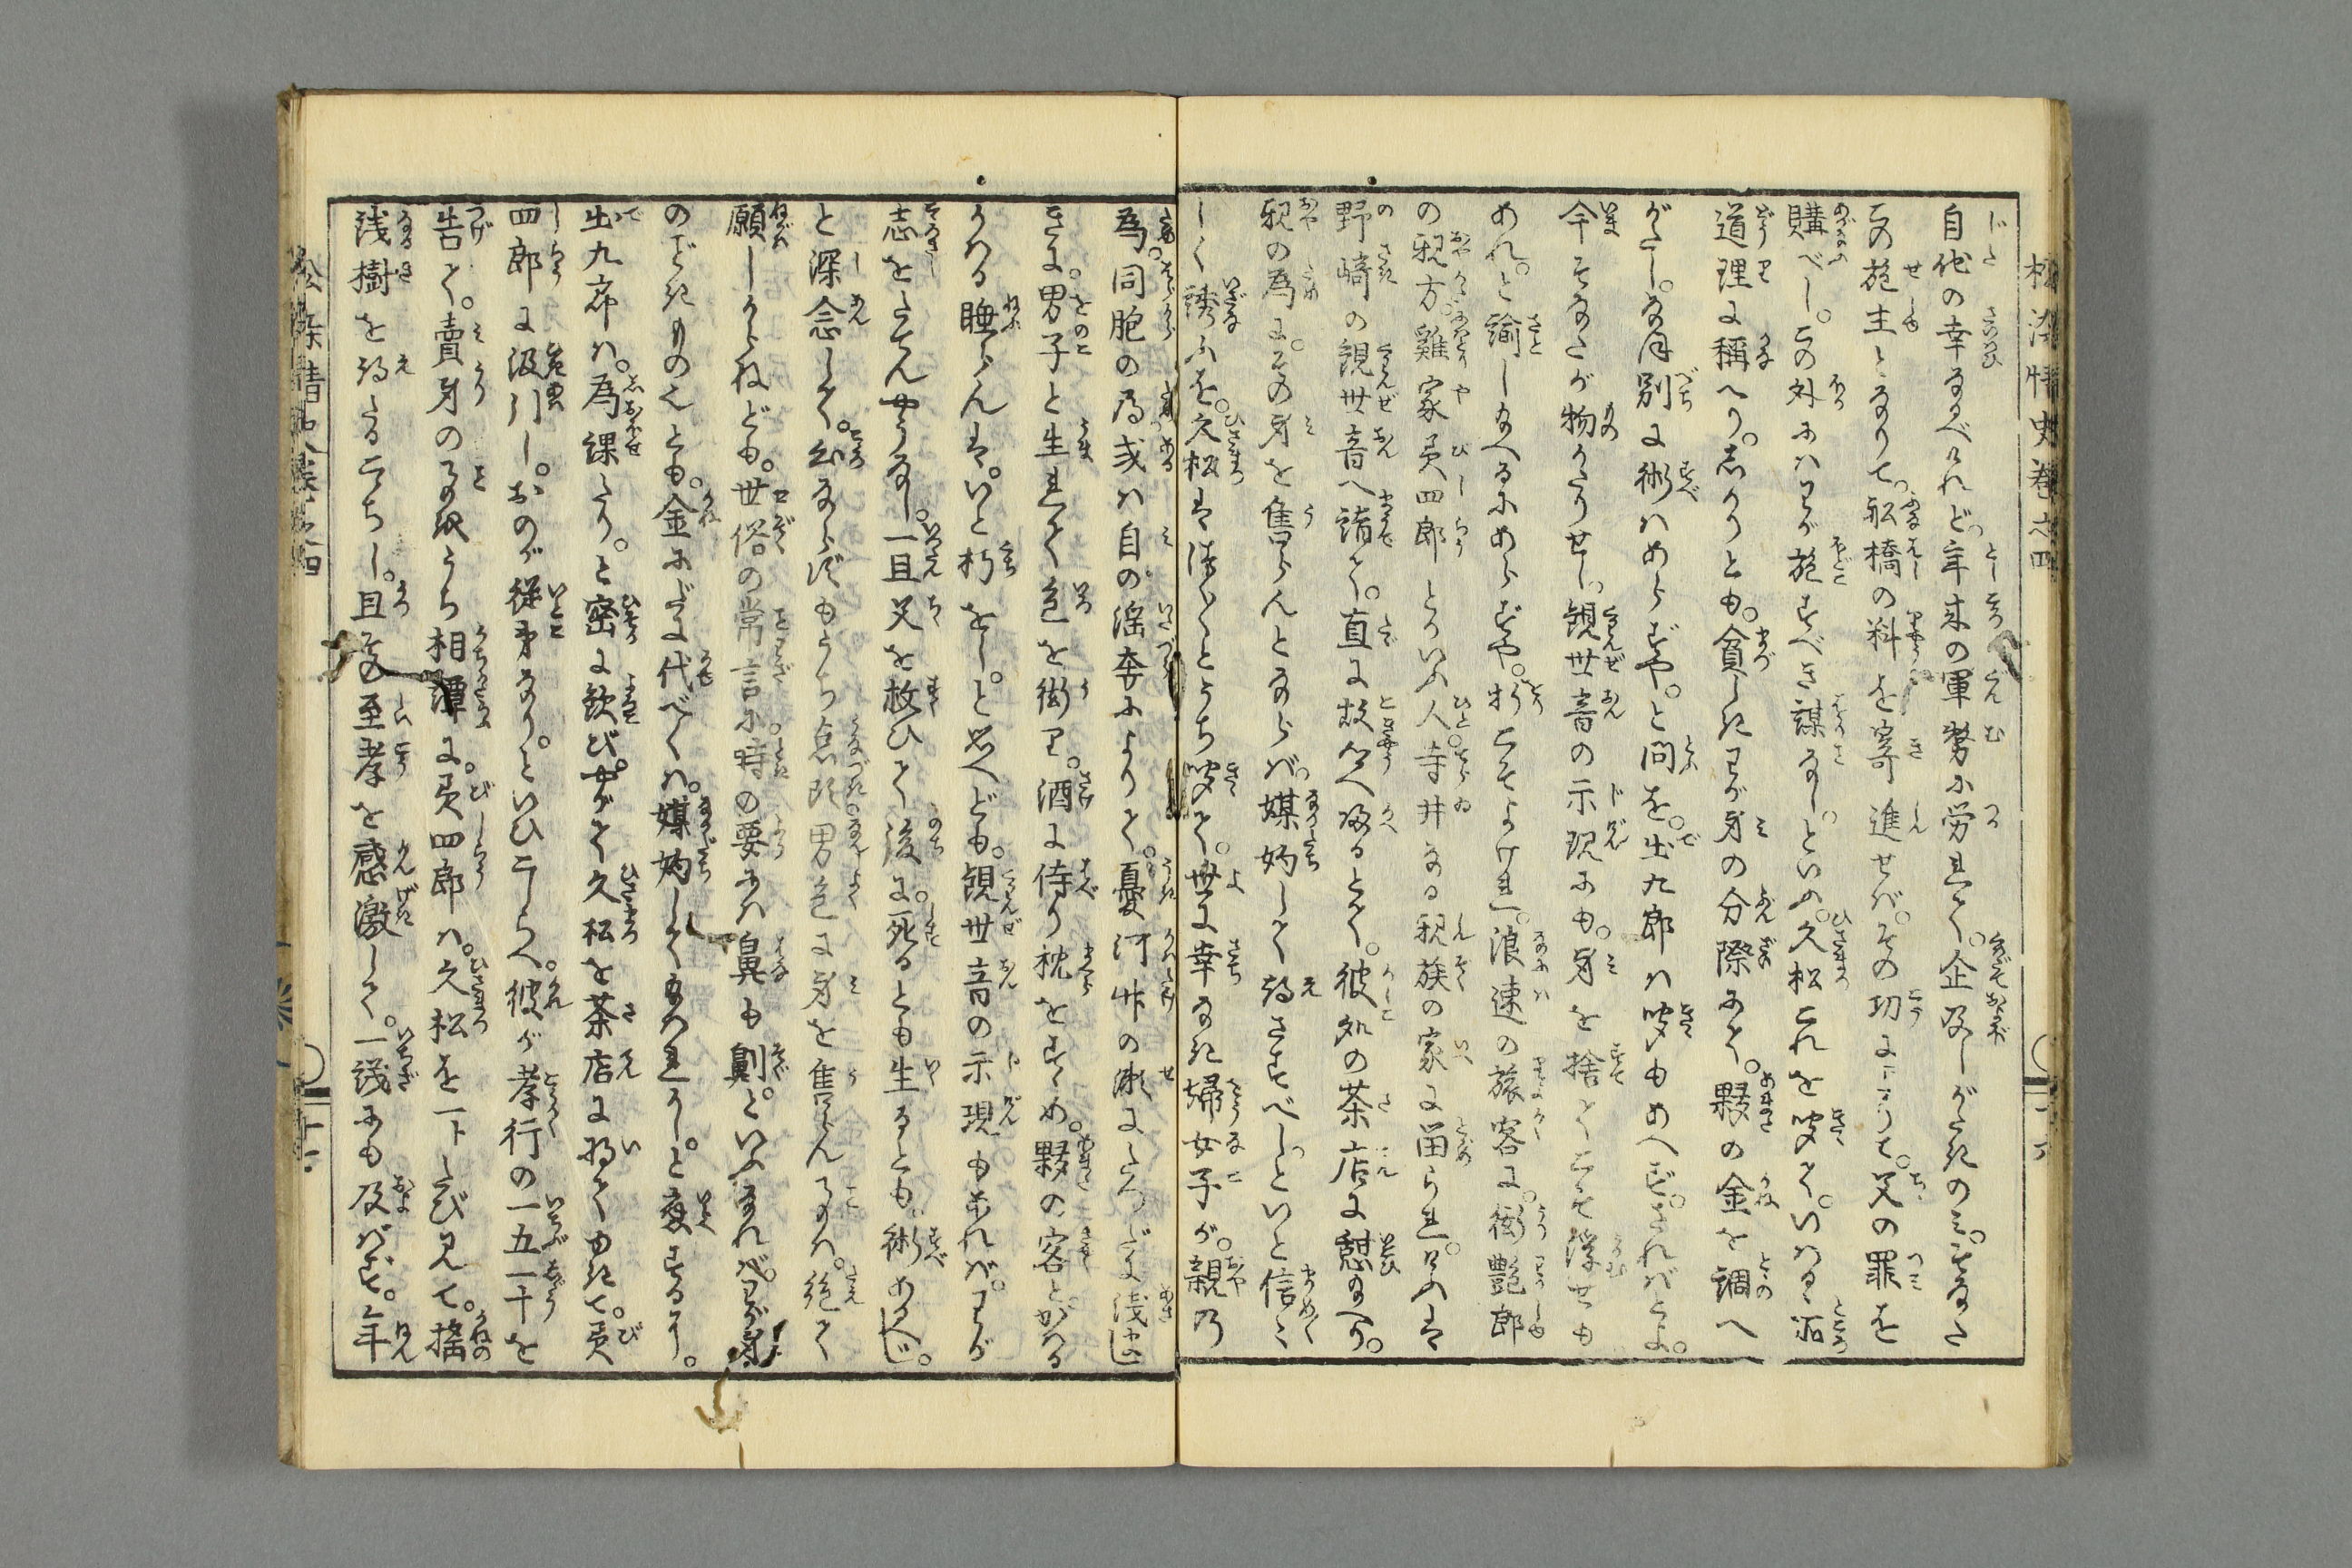 自他の幸なるべけれど。年来の軍努に労れて。企及しがたきのみ。そなた
この施主となりて。船橋の料を寄進せば。その功によりて。父の罪を
購べし。この外にはわが施すべき謀なし。といふ。久松これを聞て。いはるゝ所
道理に称へり。しかりとも。貧しきわが身の分際にて。夥の金を調へ
がたし。なほ別に術はあらずや。と問を。出九郎は聞もあへず。さればとよ。
今そなたが物がたりせし。観世音の示現にも。身を捨てこそ浮世も
あれ。と諭し給へるにあらずや。折こそよけれ。浪速の旅客に。衒艶郎
の親方。雞家の異四郎といふ人。寺井なる親族の家に留られ。けふは
野崎の観世音へ詣て。直に故郷へ帰るとて。彼処の茶店に憩給へり。
親の為に。その身を售らんとならば。媒妁して得さすべし。といと信々
しく誘ふを。久松は倩々とうち聞て。世に幸なき婦女子が。親の
為。同胞の為或は自の淫奔によりて。憂河竹の瀬にたつだに浅まし
きに。男子と生れて色を衒り。酒に侍り枕をすゝめ。夥の客とかはる
かはる睡らんは。いと朽をし。と思へども。観世音の示現もあれば。わが
志をたてんやうなし。一旦父を救ひて後に。死るとも生るとも。術あるべし。
と深念して。公ならずもうち点頭。男色に身を售らん事は。絶て
願しからねども。世俗の常言に。時の要には鼻も劓。といふなれば。わが身
のごときものなりとも。金にだに代べくは。媒妁して給はれかし。と応するに。
出九郎は。為課たり。と密に歓び。やがて久松を茶店に将てゆきて。異
四郎に汲引し。おのが従弟なり。といひこしらへ。彼が孝行の一五一十を
告て。賣身の事をうち相譚に。異四郎は。久松を一トたび見て。揺
浅樹を得たるこゝちし。且その至孝を感激して。一議にも及ばず。年
松染情史巻之四